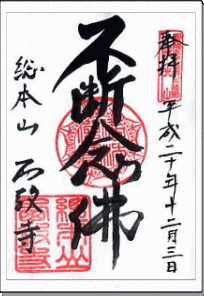 奉拝
平成二十年十二月三日
不断念仏
総本山 西教寺